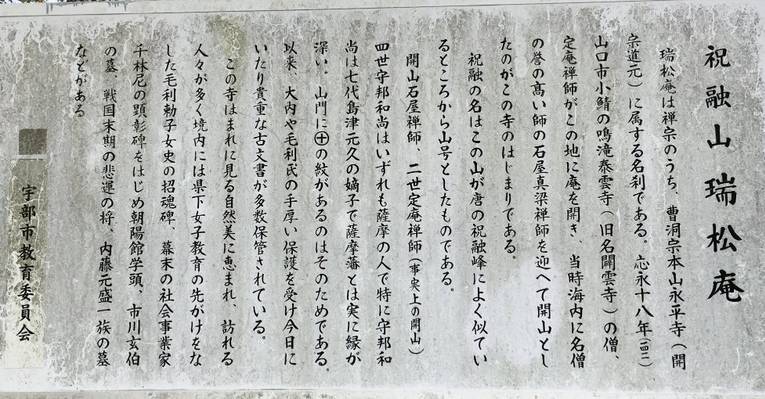 祝融山瑞松庵
瑞松庵は禅宗のうち、曹洞宗本山永平寺（開
宗道元）に属する名刹である。応永十八年（一四一一）
山口市小鯖の鳴滝泰雲寺（旧名開雲寺）の僧、
定庵禅師がこの地に庵を開き、当時海内に名僧
の誉の高い師の石屋真梁禅師を迎へて開山とし
たのがこの寺のはじまりである。
祝融の名はこの山が唐の祝融峰によく似てい
るところから山号としたものである。
開山石屋禅師、二世定庵禅師（事実上の開山）
四世守邦和尚はいずれも薩摩の人で特に守邦和
尚は七代島津元久の嫡子で薩摩藩とは実に縁が
深い。山門に㊉の紋があるのはそのためである。
以来、大内や毛利氏の手厚い保護を受け今日に
いたり貴重な古文書が多数保管されている。
この寺はまれに見る自然美に恵まれ、訪れる
人々が多く境内には県下女子教育の先がけをな
した毛利勅子女史の招魂碑、幕末の社会事業家
千林尼の顕彰碑をはじめ朝陽館学頭、市川玄伯
の墓、戦国末期の悲運の将、内藤元盛一族の墓
などがある
宇部市教育委員会